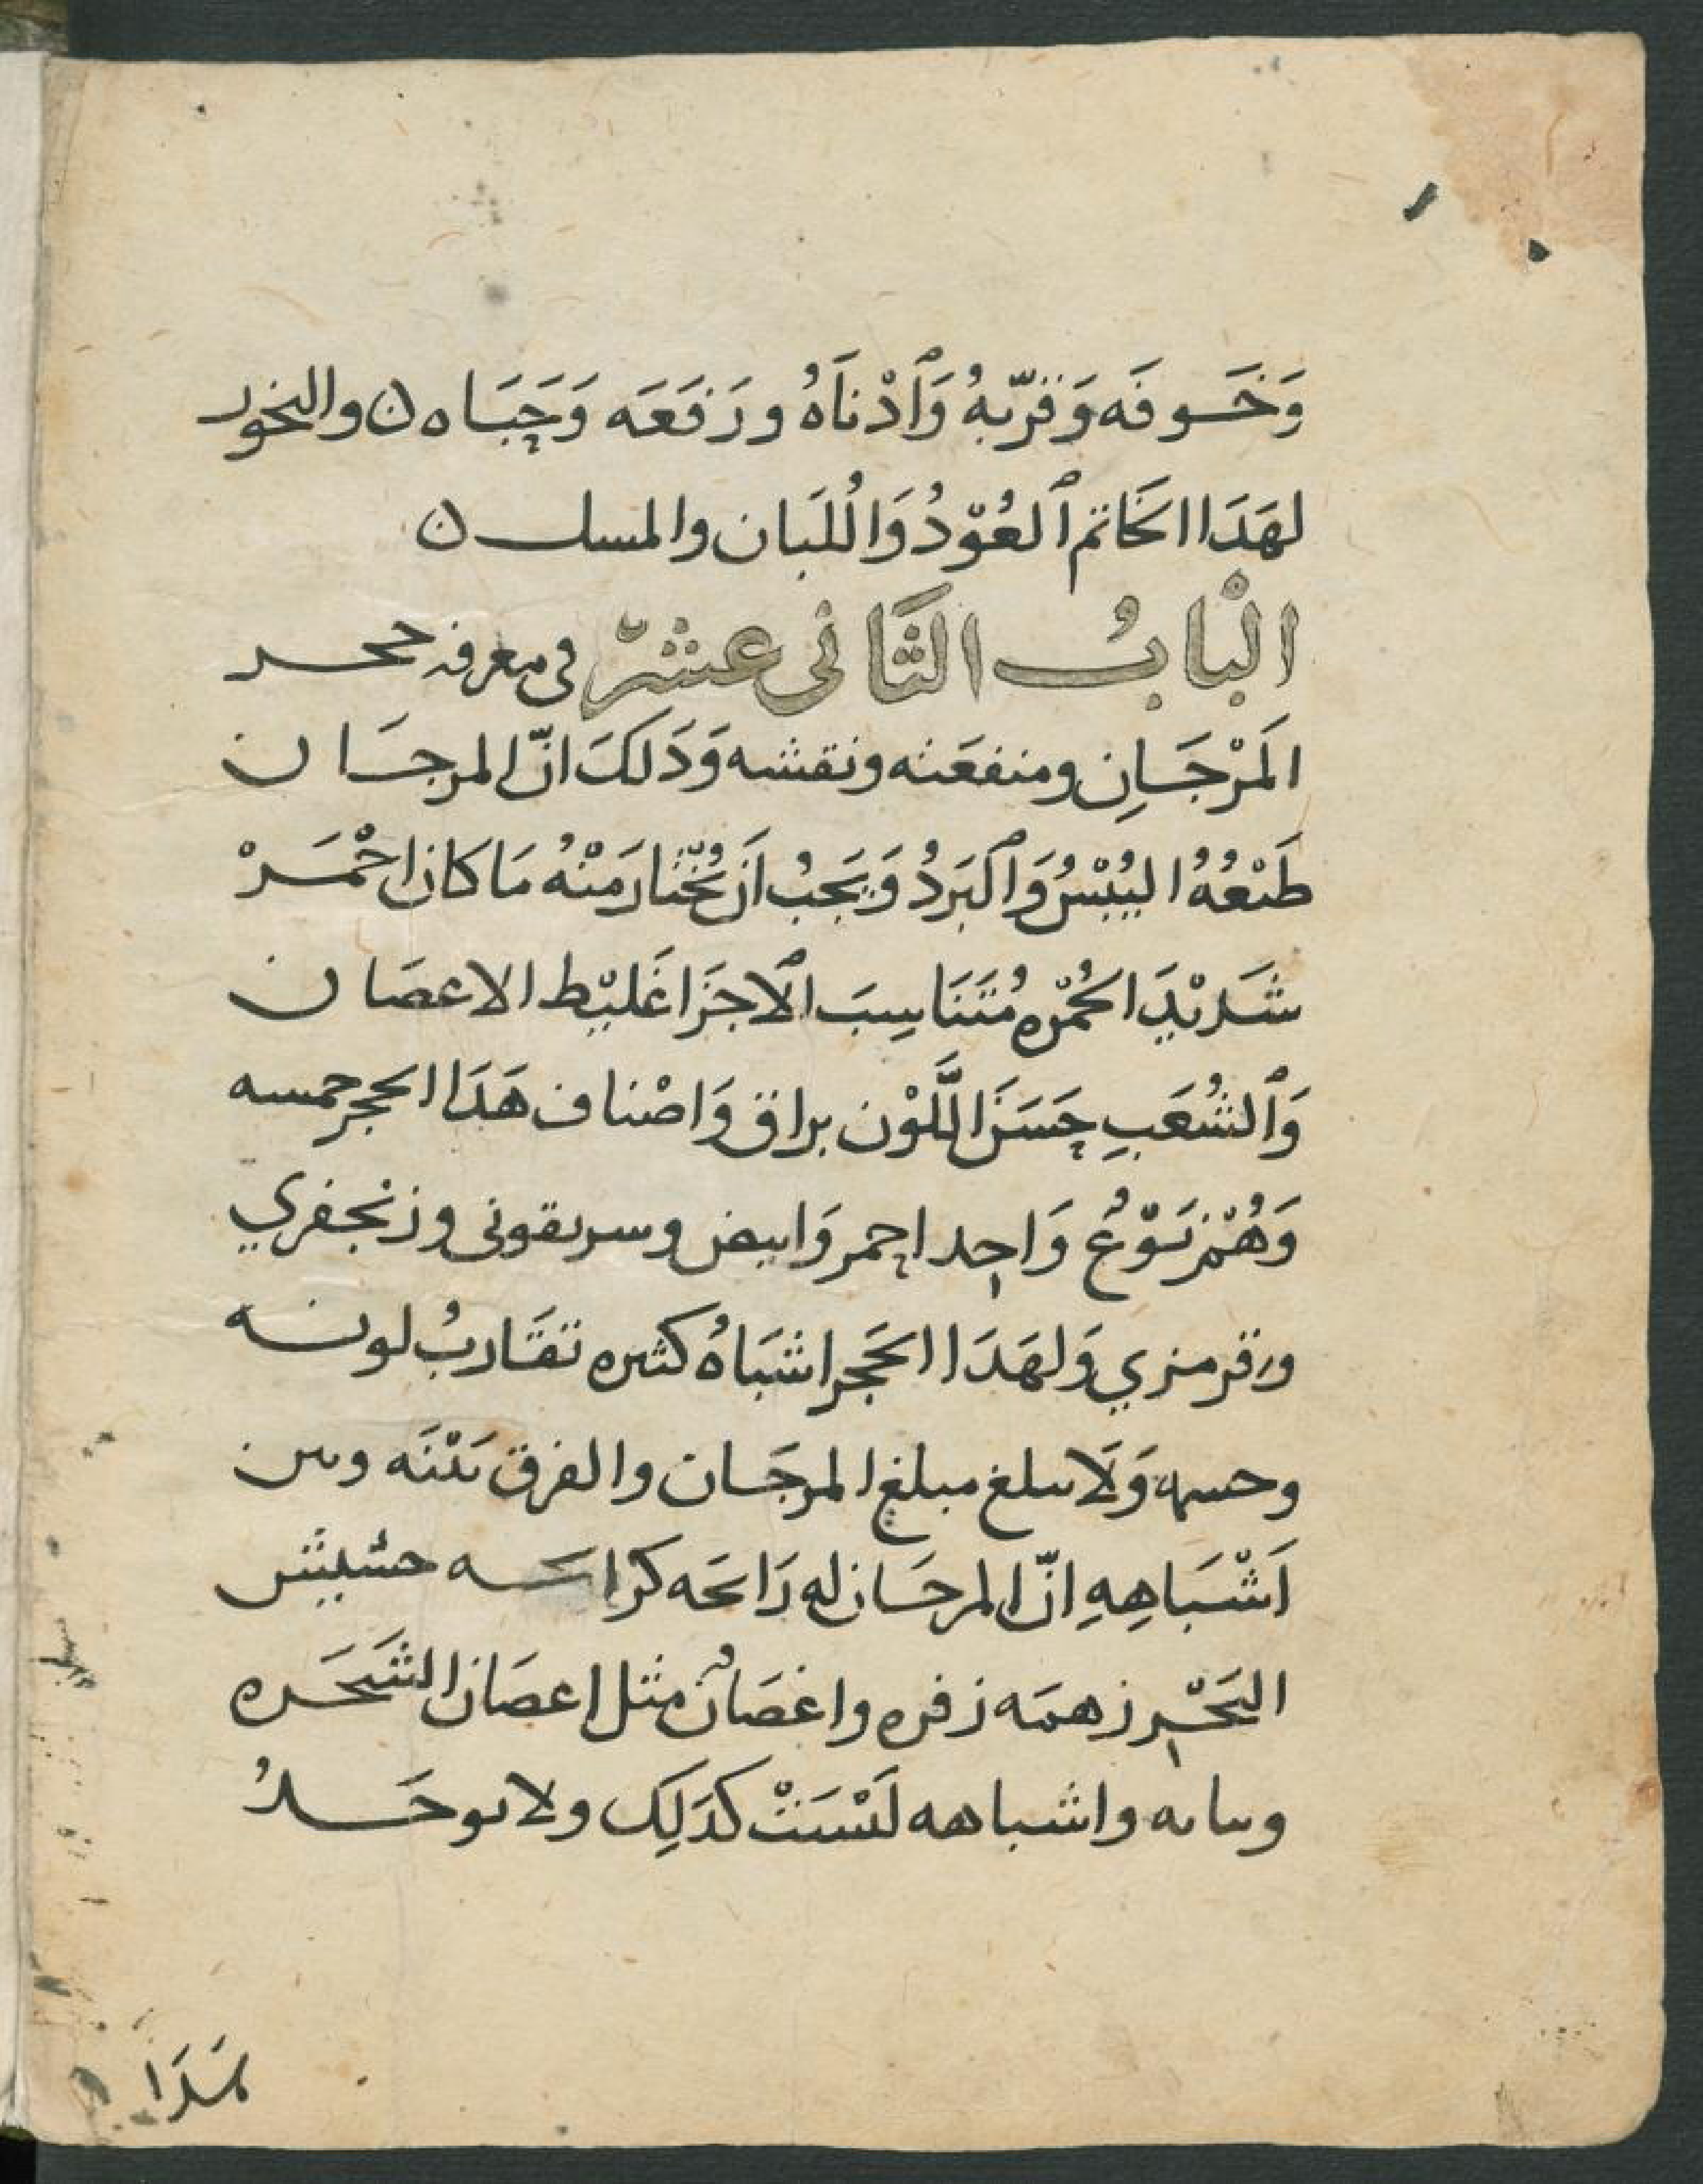 وَخَـوفَه وَقرّبهُ وَاُدْنَاهُ ورَفَعَه وَحَبَاه ن والبخور
لهَدَا الخَاتم اُلعُوْدُ وَاُللبَان والمسك ن
الْبابُ الثَّانى عشَرْ فى معرفه حجر
المَرْجَانِ ومنفعَته ونقشه وَدَلكَ انّ المرجَان
طَبْعُهُ اليُبْسُ وَاُلبَردُ وَيَجبُ اَن يُخْتَارَ مَنْهُ مَا كان احْمَرْ
شَدْيدَ الحُمْره مُتَنَاسِبَ اُلاجزَا غَليْظ الاعصَان
وَاُلشُعَبِ حَسَنَ اللَّوْن براق وَاصْناف هَدَا الحجر خمسه
وَهُمْ نَوْعُ وَاحد احمر وَابيض وسريقونى وزنْجفري
وقرمزي وَلهَدَا الحَجر اشبَاهُ كثيره تقَاربُ لونه
وحسه وَلَا يبلغ مبلغ المرجَان والفرق بَيْنَه وبين
اَشْبَاهِهِ انّ المرجَان له رَائحَه كرائحـه حشيش
البَحْر زهمَه زفره واغصَانُ مثل اعصَان الشَجَره
ونباته واشباهه لَيْسَتْ كدَلِك ولا يوجَـدُ